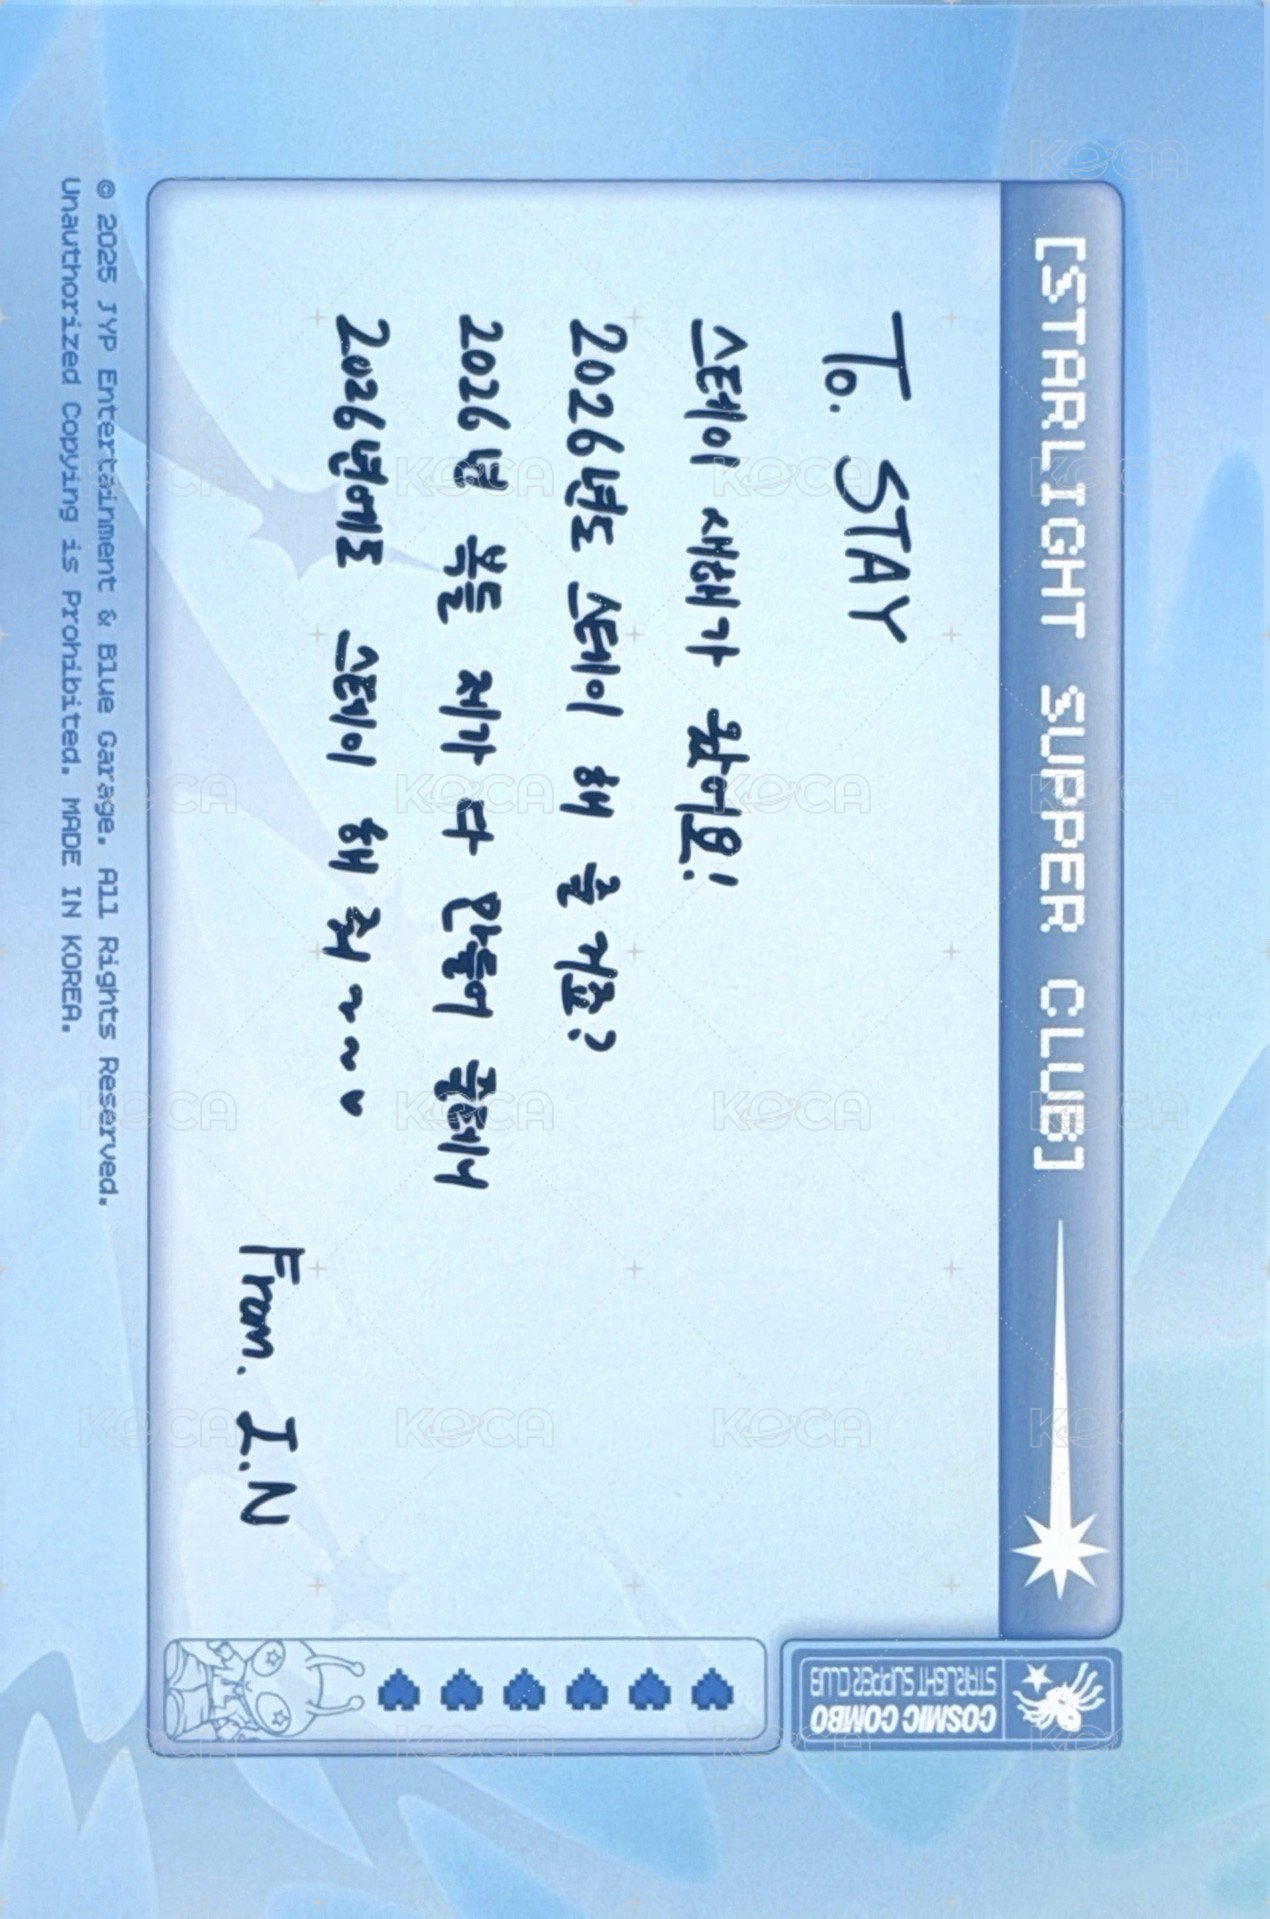 [STARLIGHT SUPPER CLUB]
To. STAY
스테이 새해가 왔어요!
2026년도 스테이 해 줄 거죠?
2026년 복들 제가 다 만들어 줄테니
2026년에도 스테이 해 줘~~♥
From. I.N
COSMIC COMBO
STARLIGHT SUPPER CLUB
© 2025 JYP Entertainment & Blue Garage. All Rights Reserved.
Unauthorized Copying is Prohibited. MADE IN KOREA.
KOCA